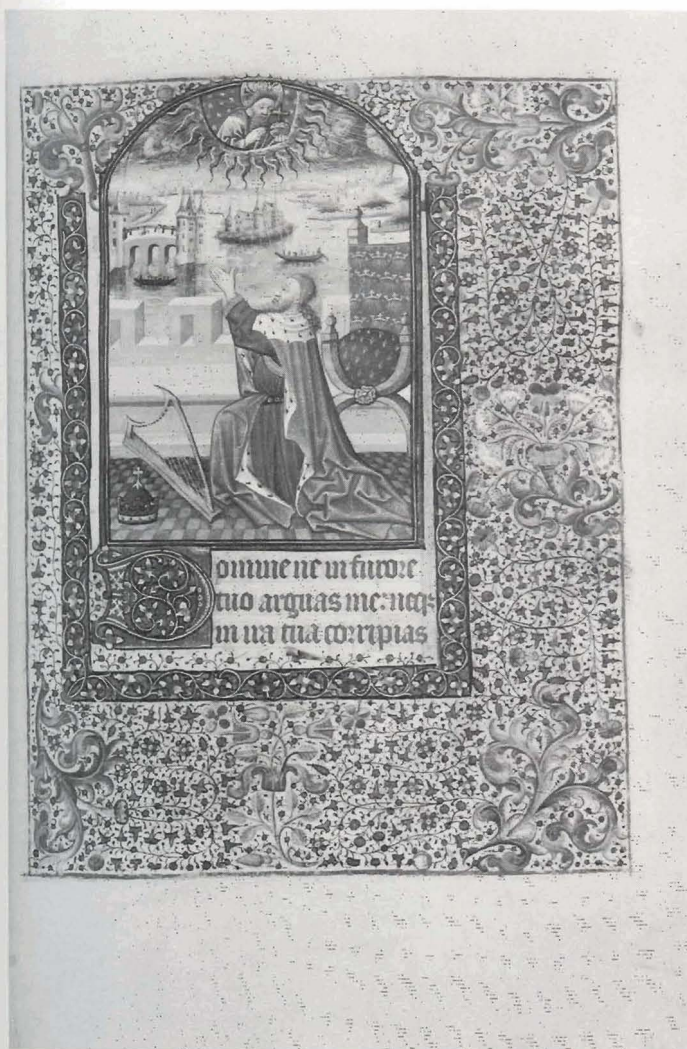 Domine ne in furore
tuo arguas me: neqꝫ
in ira tua corripias